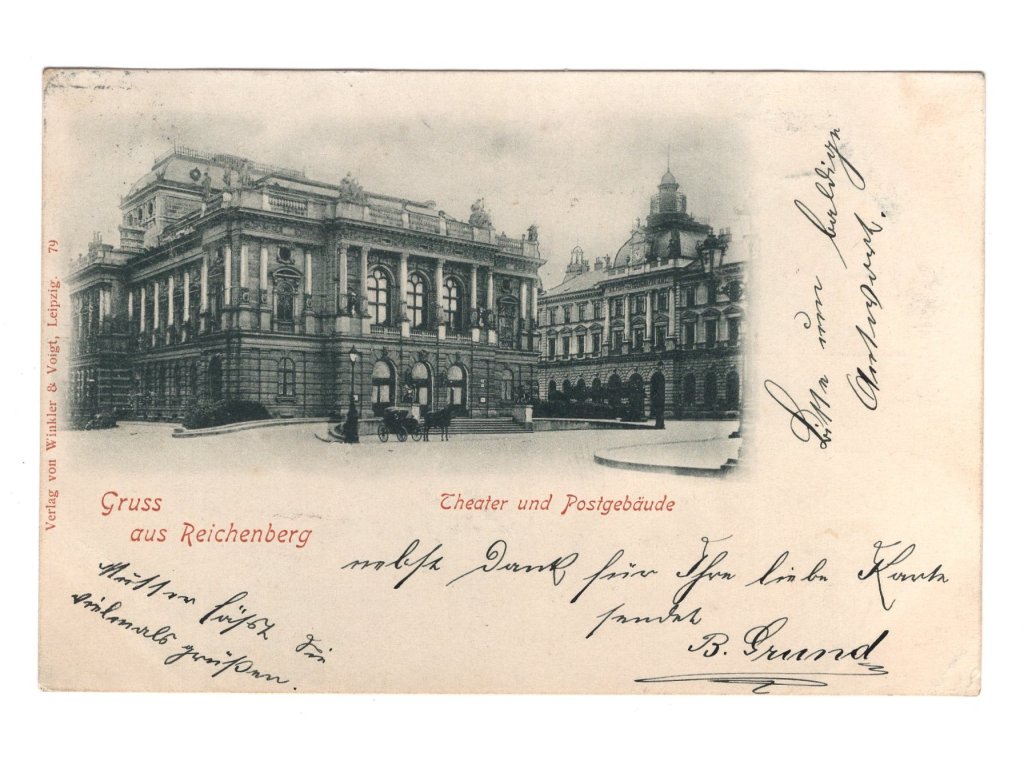 Gruss
aus Reichenberg
Theater und Postgebäude
nebst Dank für Ihre liebe Karte
sendet
B. Grund
Mutter läßt Sie
vielmals grüßen.
Bitte um baldige
Antwort.
Verlag von Winkler & Voigt, Leipzig. 79